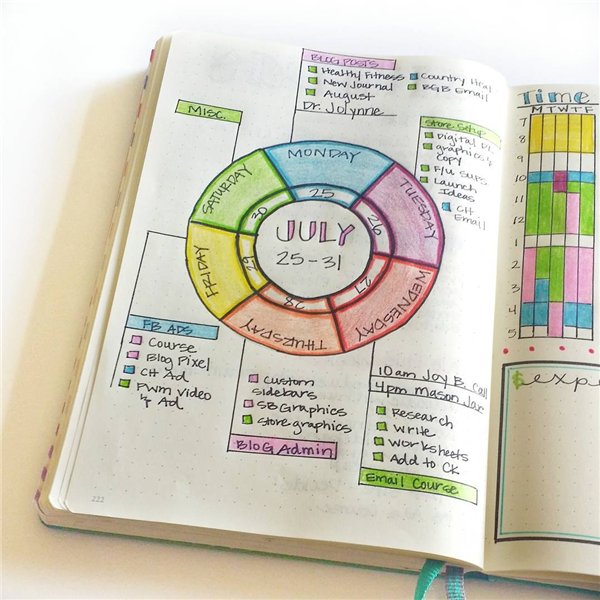 BLOG POSTS
Healthy Fitness
New Journal
August
Dr. Jolynne
Country Heal
BGB Email
Misc.
Store Setup
Digital Pl
graphics &
copy
F/U Subs
Launch
Ideas
CH
Email
MONDAY
25
TUESDAY
26
WEDNESDAY
27
THURSDAY
28
FRIDAY
29
SATURDAY
30
JULY
25-31
FB ADS
Course
Blog Pixel
CH Ad
FWM video
& Ad
Custom
Sidebars
SB Graphics
Store graphics
Blog Admin
10am Joy B. Call
4pm Mason Jar
Research
Write
Worksheets
Add to CK
Email Course
222
Time
M T W T F
7
8
9
10
11
12
1
2
3
4
5
expe